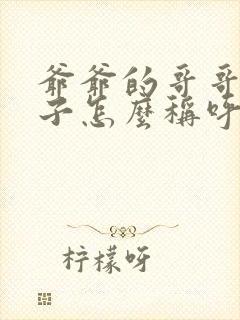 爷爷的哥哥
子怎麼稱呼
柠檬呀